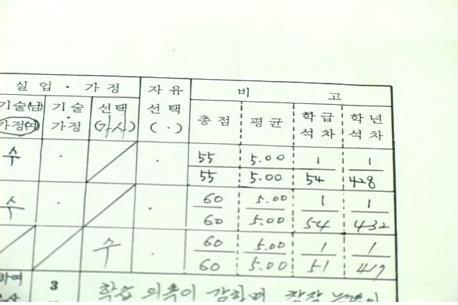 실업·가정 자유 비고
기술(남) 기술 선택 선택 총점 평균 학급 학년
가정(여) ·가정 (가사) (·) 석차 석차
수 · · 55 5.00 1 1
55 5.00 54 428
수 · 60 5.00 1 1
60 5.00 54 432
수 · 60 5.00 1 1
60 5.00 51 417
하여 3 학습 의욕이 강하며